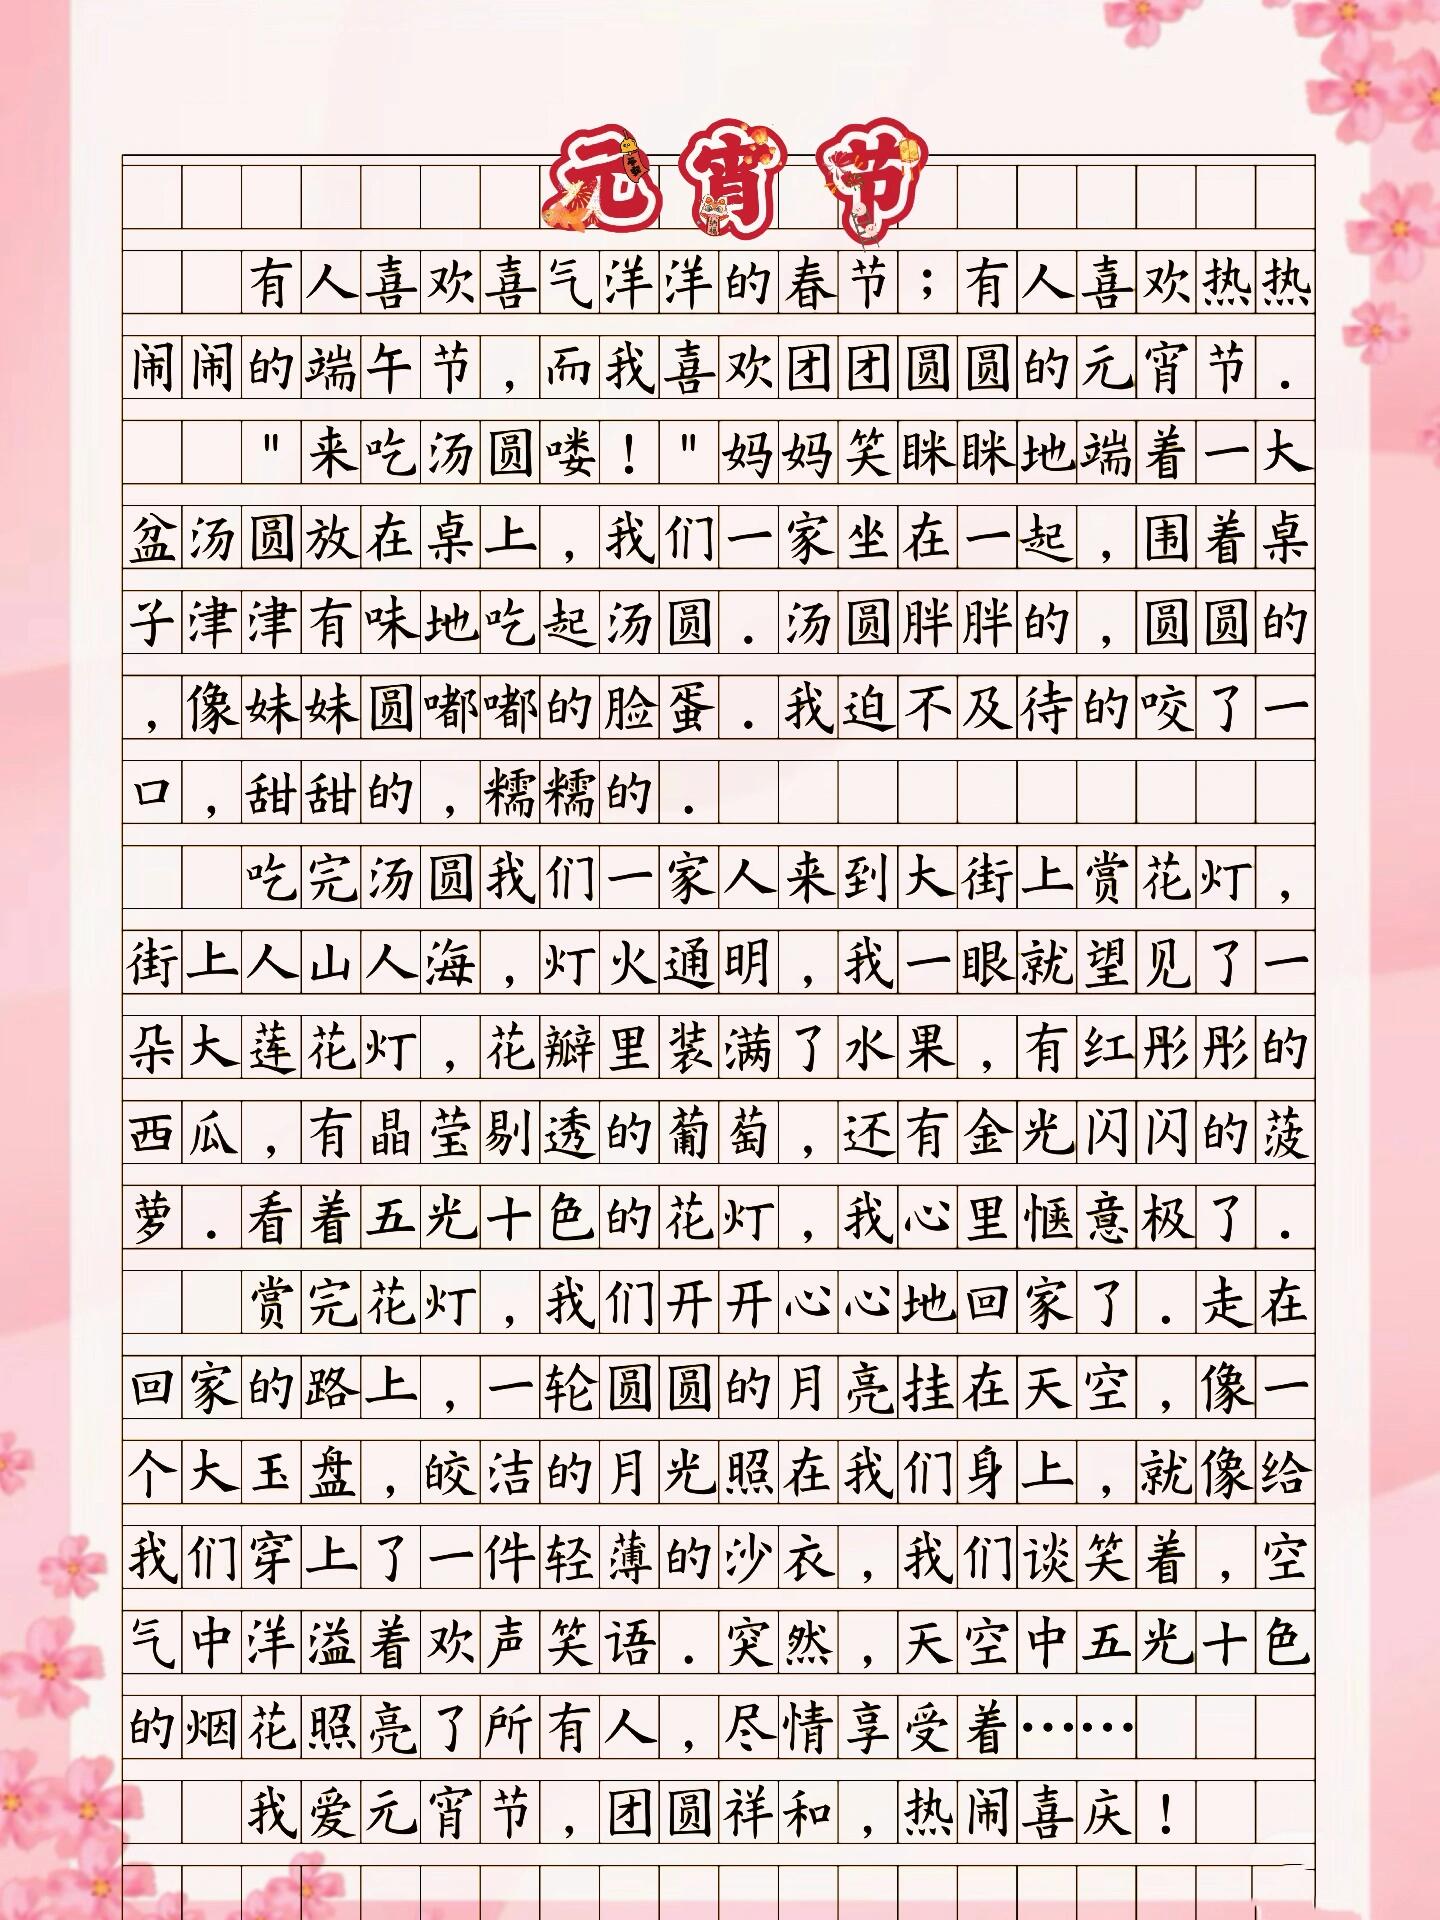 元宵节
有人喜欢喜气洋洋的春节；有人喜欢热热
闹闹的端午节，而我喜欢团团圆圆的元宵节．
"来吃汤圆喽！"妈妈笑眯眯地端着一大
盆汤圆放在桌上，我们一家坐在一起，围着桌
子津津有味地吃起汤圆．汤圆胖胖的，圆圆的
，像妹妹圆嘟嘟的脸蛋．我迫不及待的咬了一
口，甜甜的，糯糯的．
吃完汤圆我们一家人来到大街上赏花灯，
街上人山人海，灯火通明，我一眼就望见了一
朵大莲花灯，花瓣里装满了水果，有红彤彤的
西瓜，有晶莹剔透的葡萄，还有金光闪闪的菠
萝．看着五光十色的花灯，我心里惬意极了．
赏完花灯，我们开开心心地回家了．走在
回家的路上，一轮圆圆的月亮挂在天空，像一
个大玉盘，皎洁的月光照在我们身上，就像给
我们穿上了一件轻薄的沙衣，我们谈笑着，空
气中洋溢着欢声笑语．突然，天空中五光十色
的烟花照亮了所有人，尽情享受着……
我爱元宵节，团圆祥和，热闹喜庆！